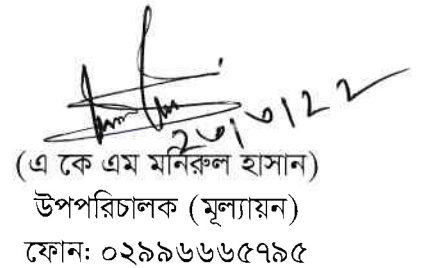 ২৩/৩/২২
(এ কে এম মনিরুল হাসান)
উপপরিচালক (মূল্যায়ন)
ফোন: ০২৯৯৬৬৬৫৭৯৫